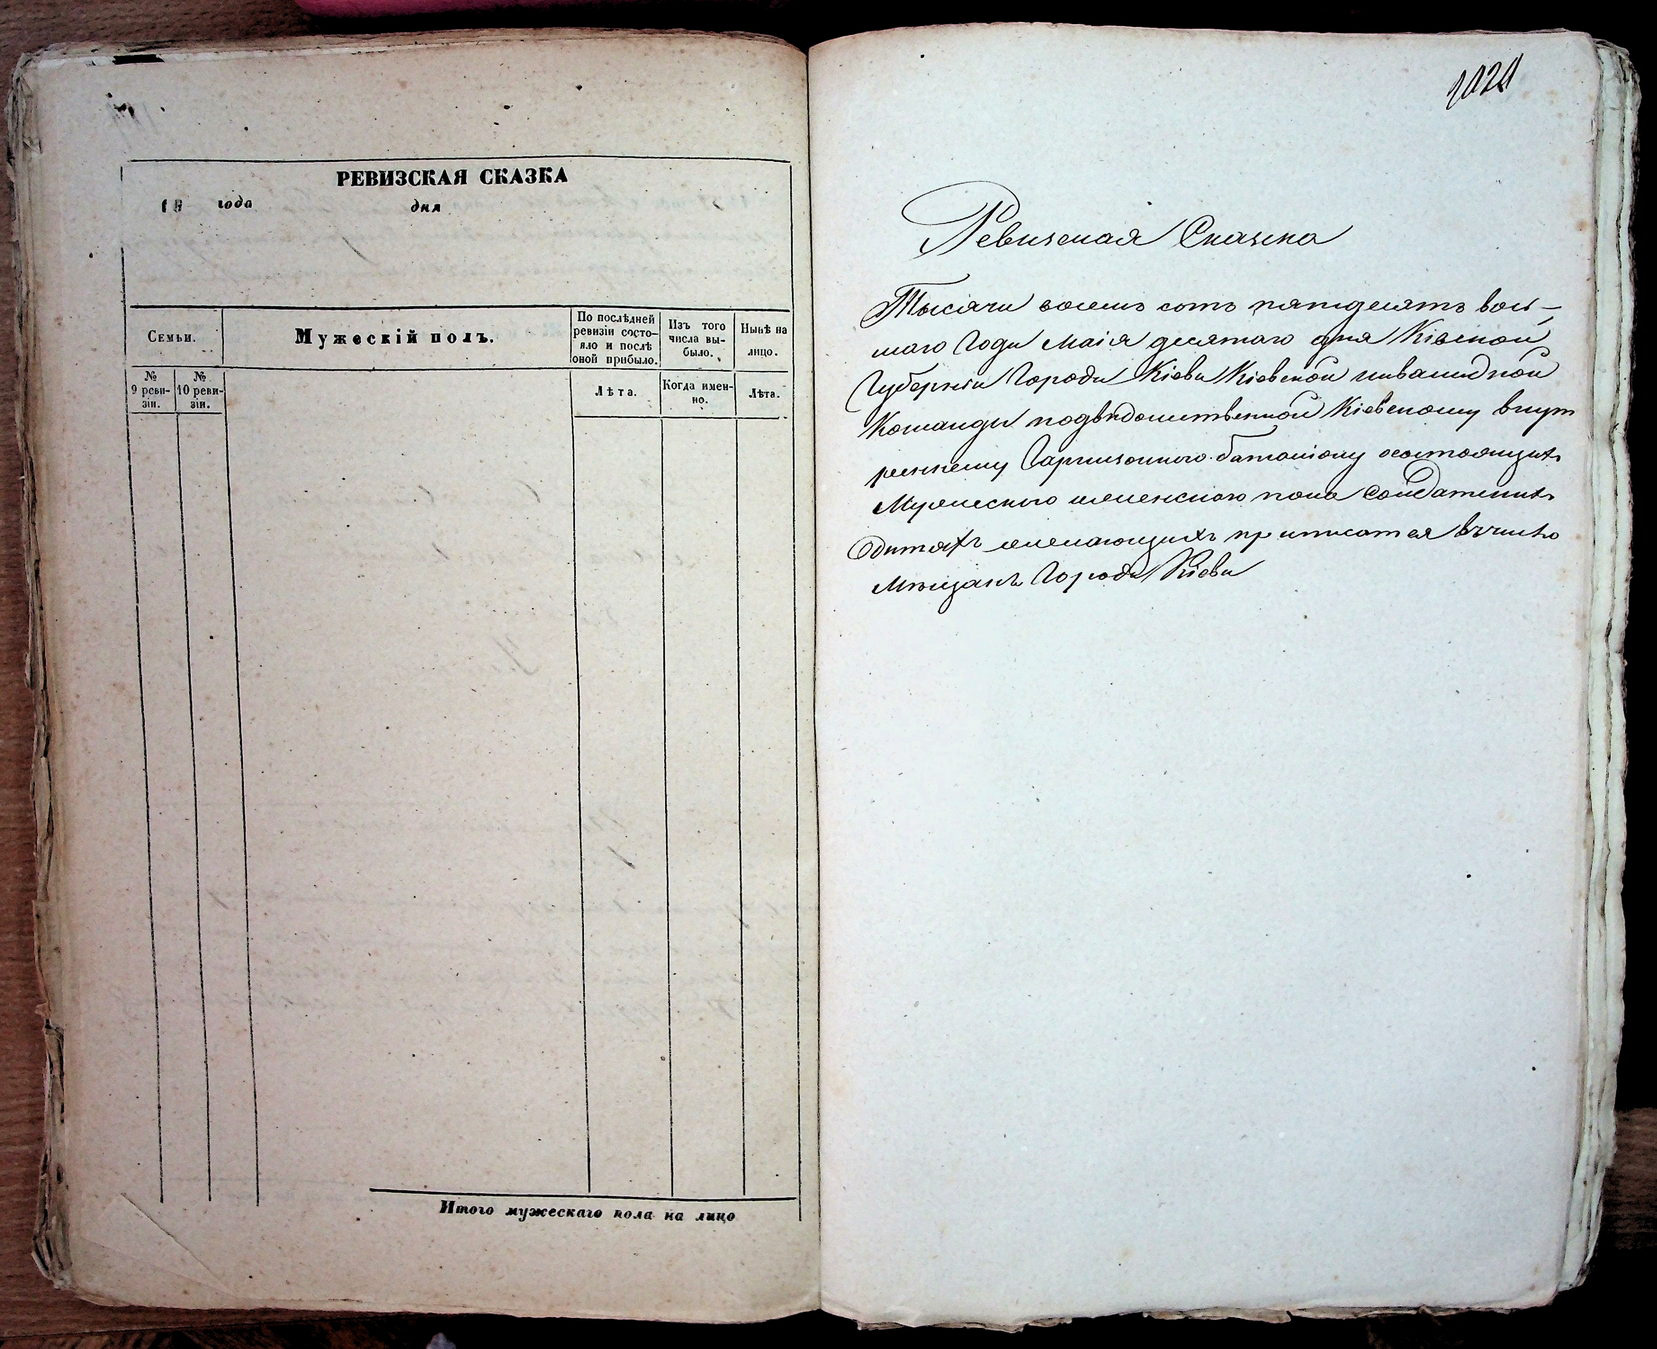 РЕВИЗСКАЯ СКАЗКА
18 года дня
Семьи.
Мужескій полъ.
По послѣдней
ревизіи состо-
яло и послѣ
оной прибыло.
Изъ того
числа вы-
было.
Нынѣ на
лицо.
№
9 реви-
зіи.
№
10 реви-
зіи.
Лѣта.
Когда имен-
но.
Лѣта.
Итого мужескаго пола на лицо
1021
Ревизская Сказка
Тысячи восемь сотъ пятдесятъ вось-
маго Года Маія десятаго дня Кіевской
Губерніи Города Кіева Кіевской инвалидной
Команды подвѣдомственной Кіевскому внут
реннему Гарнизонного баталіону осостоящихъ
Мужеского женского пола Солдатскихъ
Одитяхъ желающихъ приписатся въчисло
Мѣщанъ Города Кіева